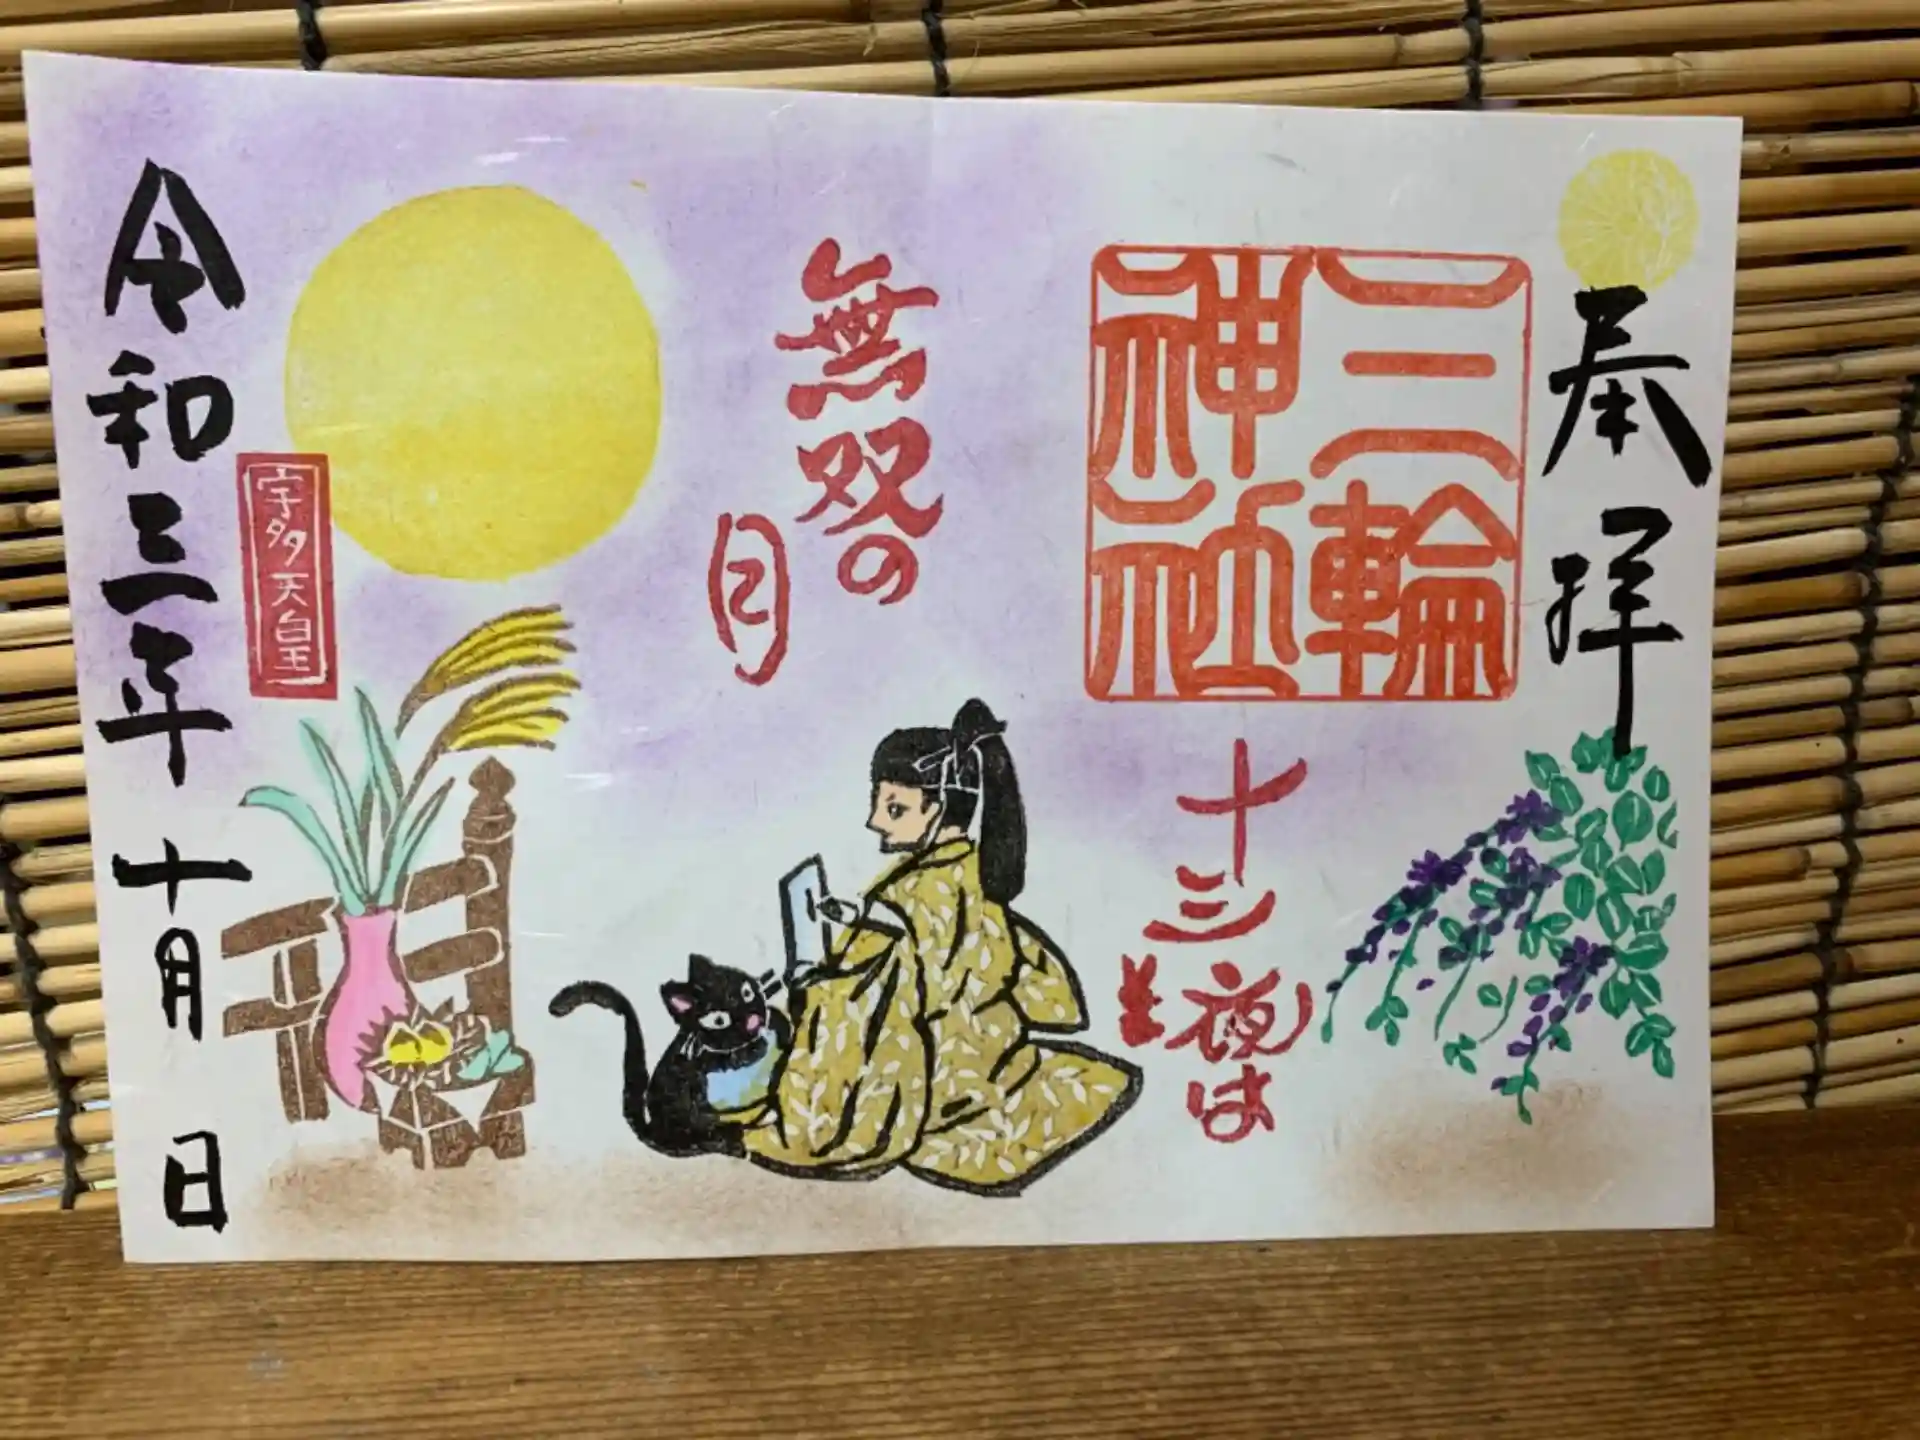 奉拝
三輪
神社
十三夜は
無双の
月
宇多天皇
令和三年十月 日